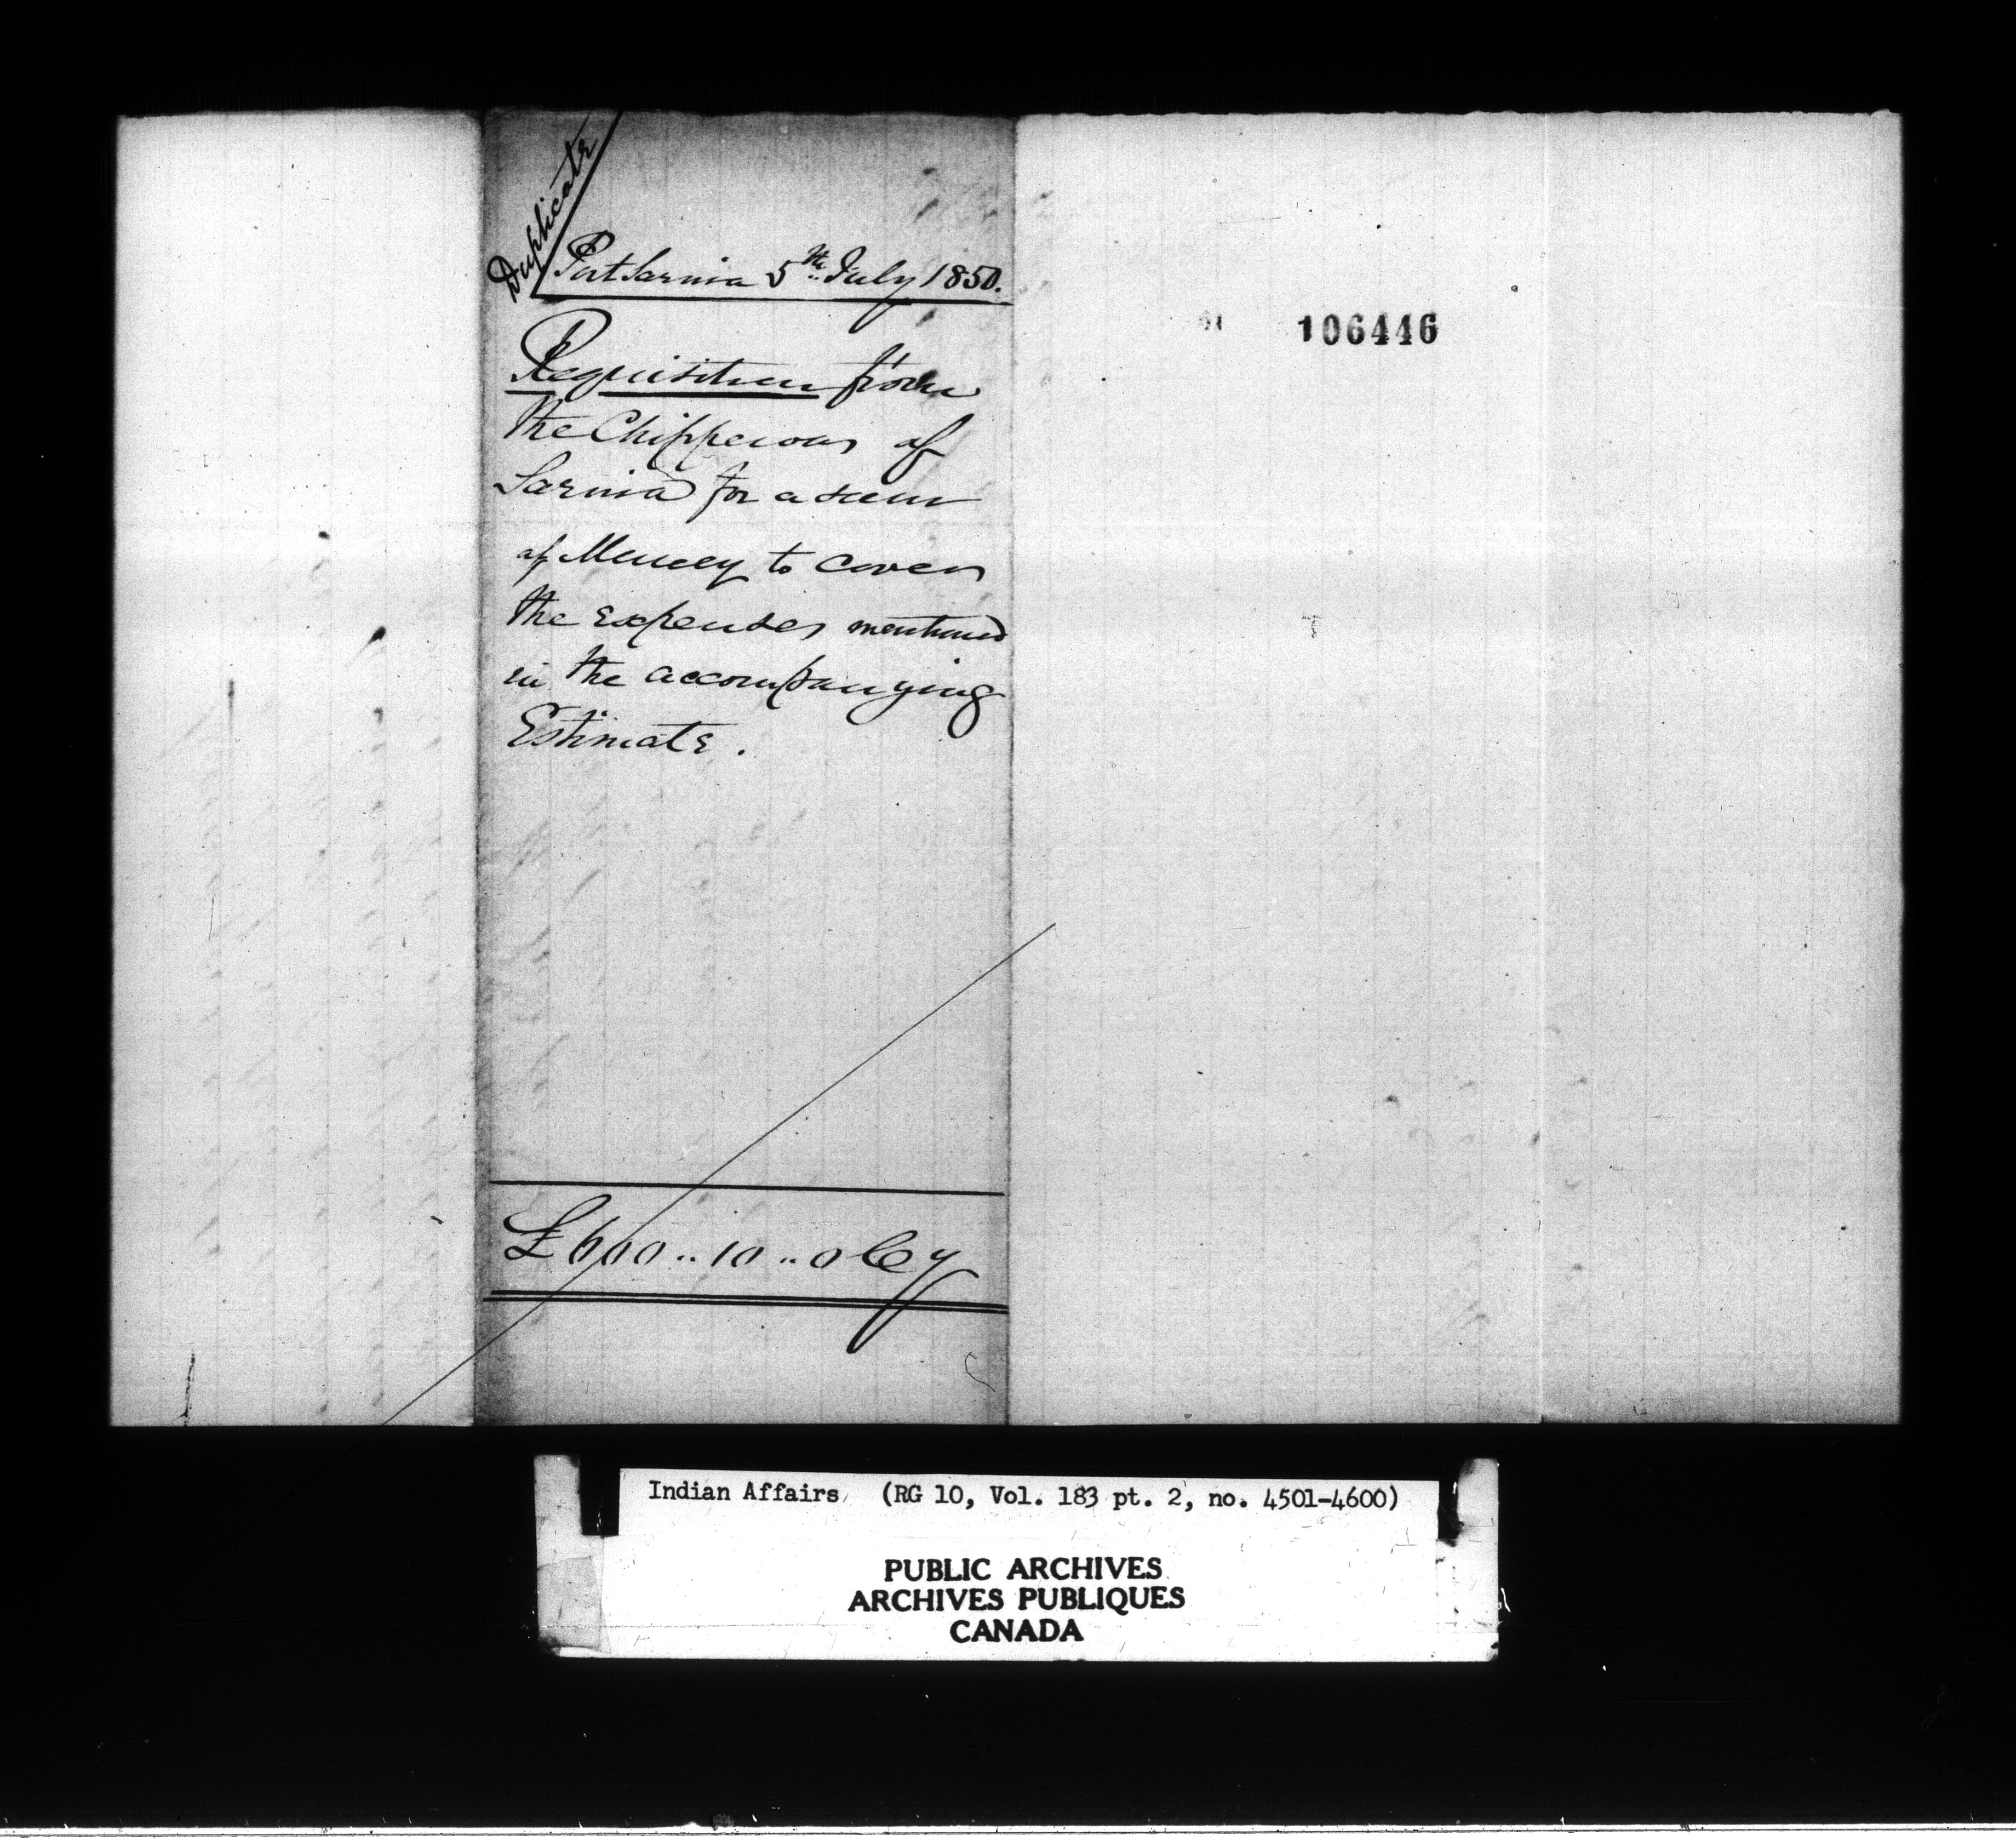 Duplicate
Port Sarnia 5th July 1850.
Requisition from
the Chippewas of
Sarnia for a sum
of Money to cover
the expenses mentioned
in the accompanying
Estimate.
£600..10..0 Cy
106446
Indian Affairs (RG 10, Vol. 183 pt. 2, no. 4501-4600)
PUBLIC ARCHIVES
ARCHIVES PUBLIQUES
CANADA